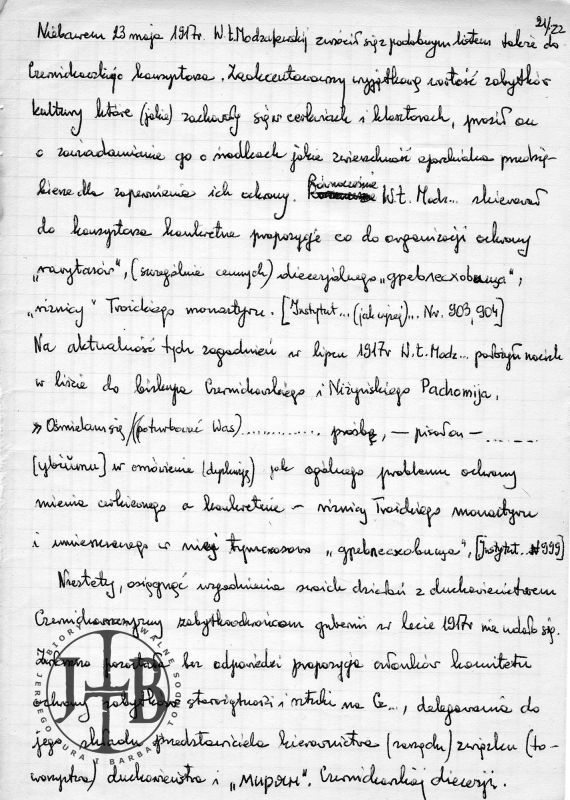 21/22
Niebawem 23 maja 1917r. W.Ł.Modzalewskij zwrócił się z podobnym listem także do
Czernichowskiego konsystorza. Zaakcentowawszy wyjątkową wartość zabytków
kultury które (jakie) zachowały się w cerkwiach i klasztorach, prosił on
o zawiadamianie go o środkach jakie zwierzchność eparchialna przedsię-
bierze dla zapewnienia ich ochrony. Równocześnie W.Ł. Modz... skierował
do konsystorza konkretne propozycje co do organizacji ochrony
„rarytasów”, (szczególnie cennych) diecezjalnego „древлехранилища”,
„riznicy” Troickiego monastyru. [Instytut... (jak wyżej)... Nr. 903, 904]
Na aktualność tych zagadnień w lipcu 1917r W.Ł. Modz... położył nacisk
w liście do biskupa Czernichowskiego i Niżyńskiego Pachomija,
» Ośmielam się /(poturbować Was).............. prośbę, – pisał on – ......
w omówienie (dyskusję) jak ogólnego problemu ochrony
mienia cerkiewnego a konkretnie – riznicy Troickiego monastyru
i umieszczonego w niej tymczasowo „древлехранилища”, [Instytut.. 999]
Niestety, osiągnąć uzgodnienia swoich działań z duchowieństwem
zabytkoochrońcom guberni w lecie 1917r nie udało się.
pozostała bez odpowiedzi propozycja członków komitetu
ochrony zabytków starożytności i sztuki na Cz..., delegowania do
jego składu przedstawiciela kierownictwa (zarządu) związku (to-
warzystwa) duchowieństwa i „мирян”. Czernichowskiej diecezji.
JBT